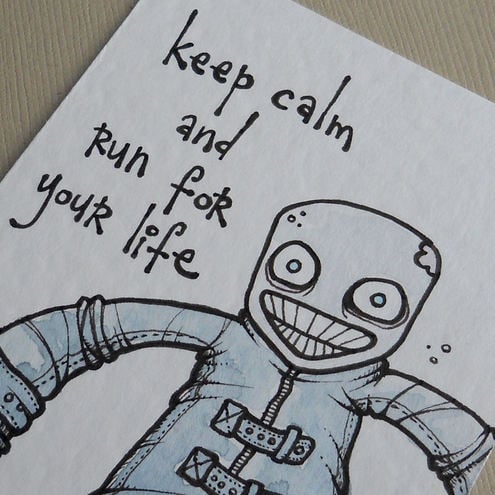 keep calm
and
RUN foR
youR life